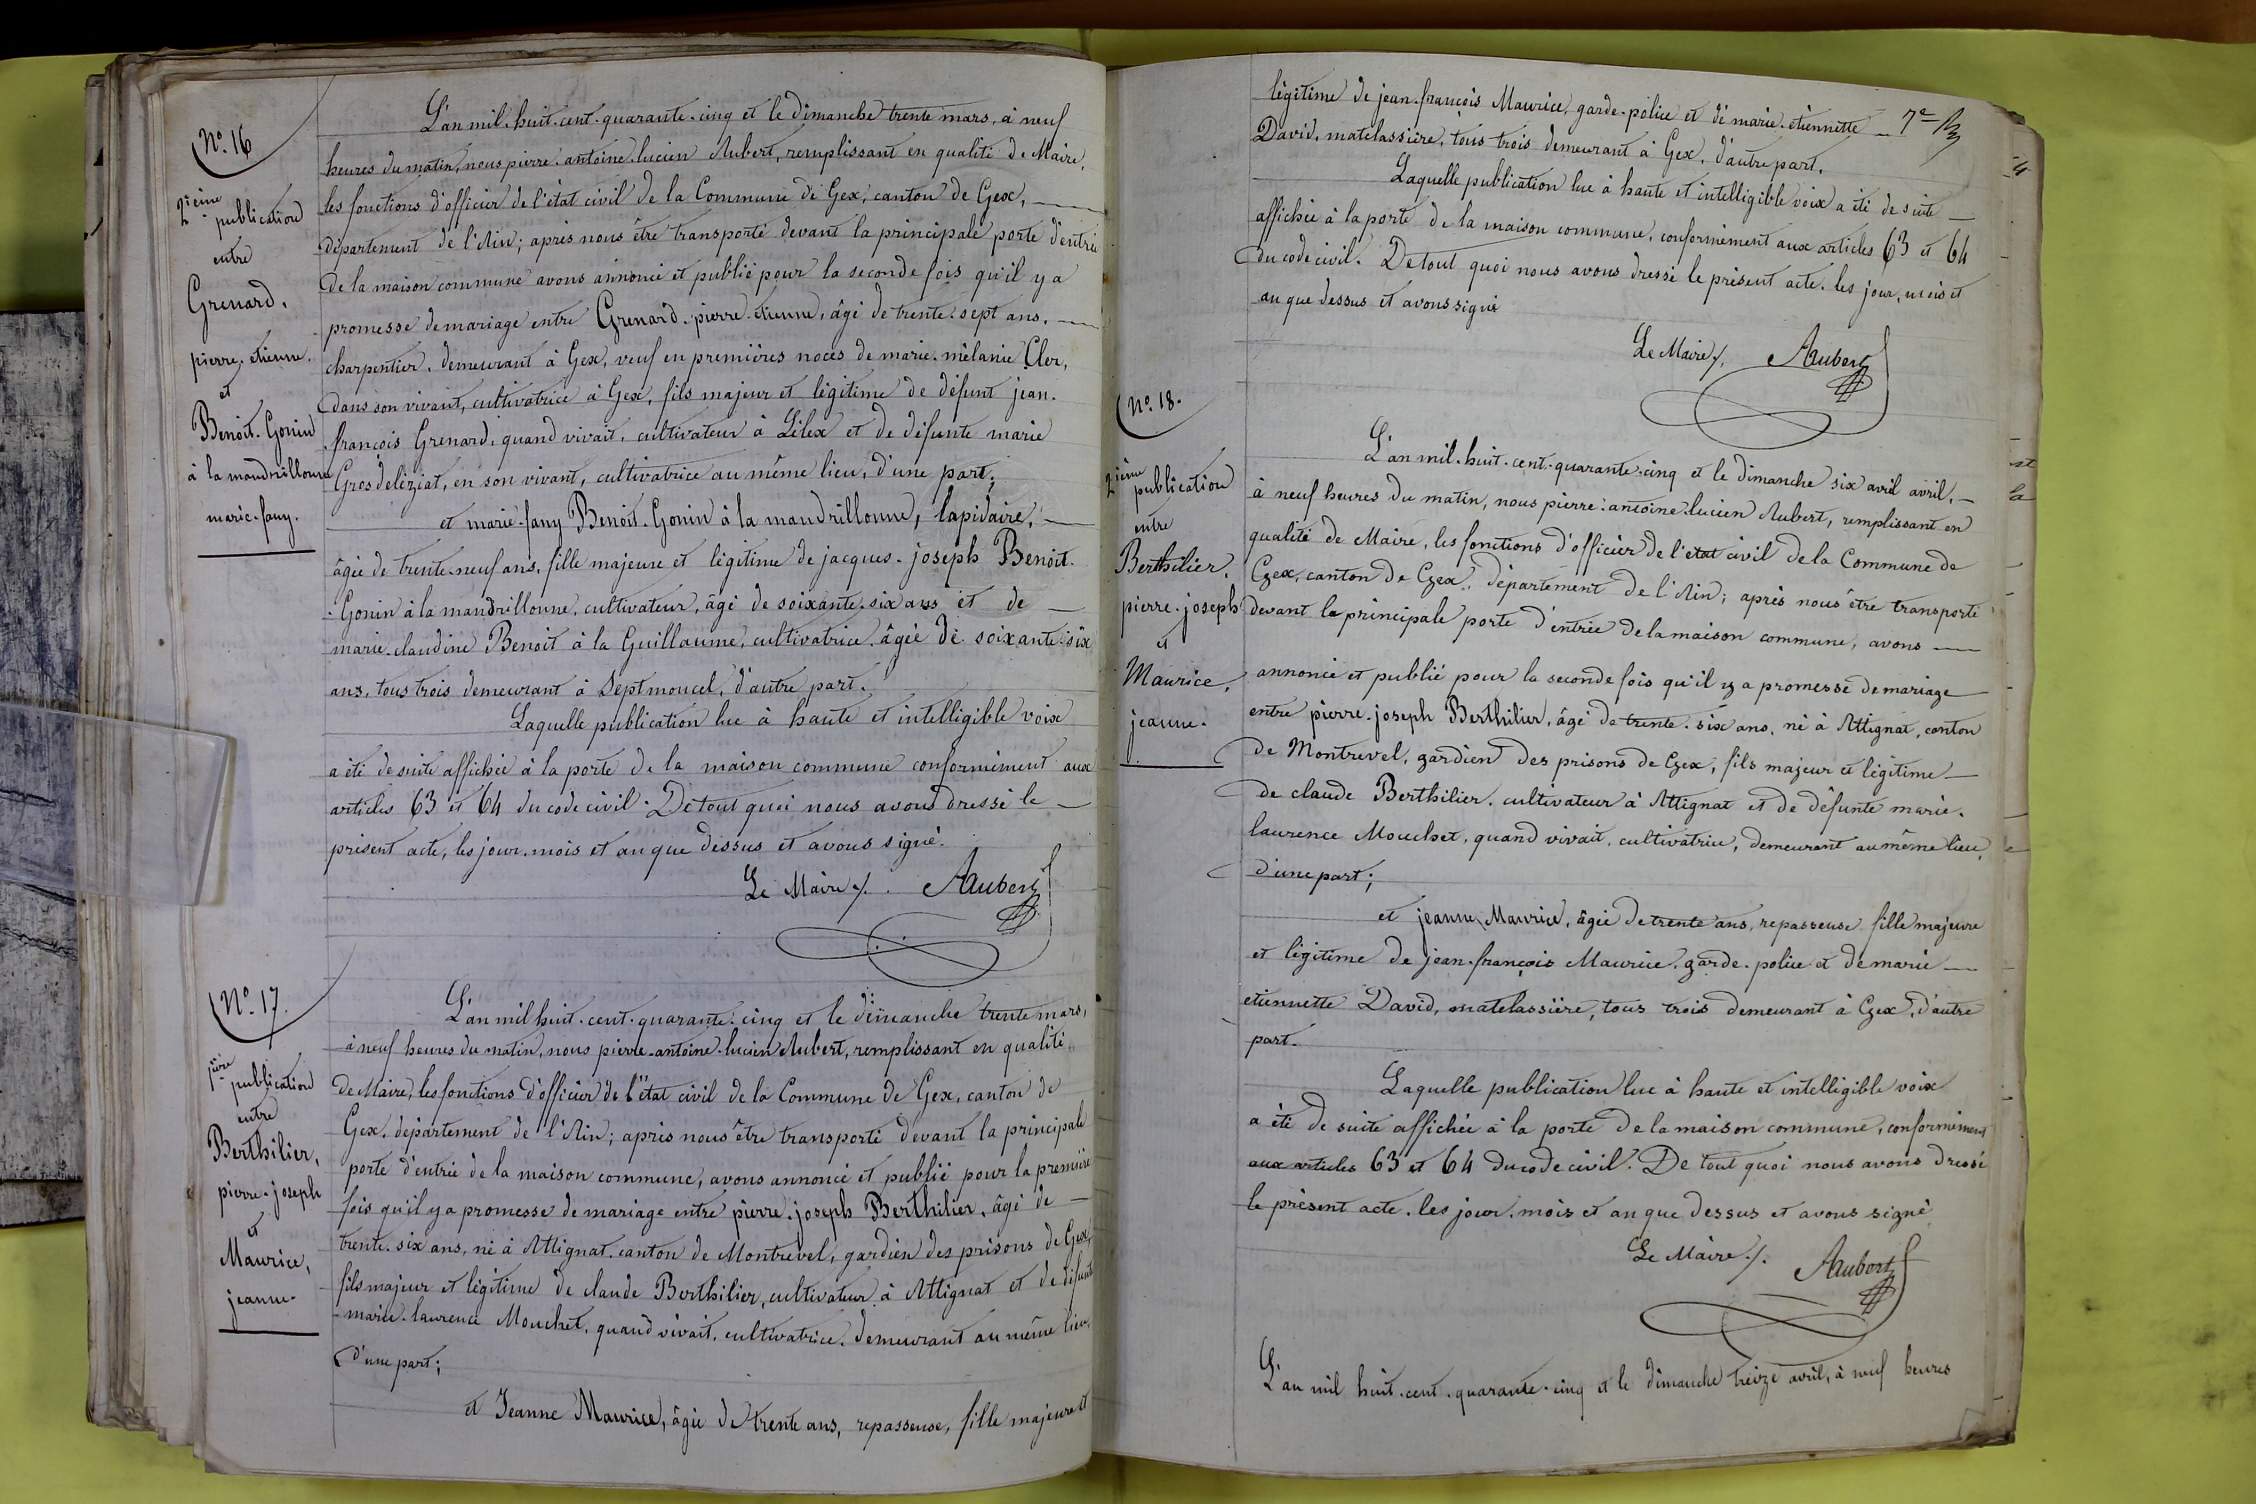 N.º 16
2.ième publication
entre
Grenard,
pierre. etienne.
et
Benoit. Gonin
à la mandrillonne
marie-fany.
L'an mil. huit. cent. quarante. cinq et le dimanche trente mars, à neuf
heures du matin, nous pierre. antoine. lucien Aubert, remplissant en qualité de Maire,
les fonctions d'officier de l'état civil de la Commune de Gex, canton de Gex,
département de l'Ain; après nous être transporté devant la principale porte d'entrée
de la maison commune avons annoncé et publié pour la seconde fois qu'il y a
promesse de mariage entre Grenard. pierre. etienne, âgé de trente. sept ans.
charpentier, demeurant à Gex, veuf en premières noces de marie. mélanie Cler,
dans son vivant, cultivatrice à Gex, fils majeur et légitime de défunt jean.
françois Grenard, quand vivait, cultivateur à Lélex et de défunte marie
Grosdeléziat, en son vivant, cultivatrice au même lieu, d'une part;
et marie-fany Benoit. Gonin à la mandrillonne, lapidaire,
âgée de trente. neuf ans, fille majeure et légitime de jacques. joseph Benoit.
Gonin à la mandrillonne, cultivateur, âgé de soixante. six ans et de
marie. claudine Benoit à la Guillaume, cultivatrice, âgée de soixante. six
ans, tous trois demeurant à Septmoncel, d'autre part.
Laquelle publication lue à haute et intelligible voix
a été de suite affichée à la porte de la maison commune conformément aux
articles 63 et 64 du code civil. De tout quoi nous avons dressé le
présent acte, les jour, mois et an que dessus et avons signé.
Le Maire. Aubert
N.º 17.
1.ière publication
entre
Berthilier,
pierre. joseph
et
Maurice,
jeanne.
L'an mil huit. cent. quarante. cinq et le dimanche trente mars,
à neuf heures du matin, nous pierre. antoine. lucien Aubert, remplissant en qualité
de Maire, les fonctions d'officier de l'état civil de la Commune de Gex, canton de
Gex, département de l'Ain; après nous être transporté devant la principale
porte d'entrée de la maison commune, avons annoncé et publié pour la première
fois qu'il y a promesse de mariage entre pierre. joseph Berthilier, âgé de
trente. six ans, né à Attignat, canton de Montrevel, gardien des prisons de Gex,
fils majeur et légitime de claude Berthilier, cultivateur à Attignat et de défunte
marie. laurence Mouchet, quand vivait, cultivatrice, demeurant au même lieu,
d'une part;
et Jeanne Maurice, âgée de trente ans, repasseuse, fille majeure et
légitime de jean. françois Maurice, garde. police et de marie. étiennette 7.e
David, matelassière, tous trois demeurant à Gex, d'autre part.
Laquelle publication lue à haute et intelligible voix a été de suite
affichée à la porte de la maison commune, conformément aux articles 63 et 64
du code civil. De tout quoi nous avons dressé le présent acte. les jour, mois et
an que dessus et avons signé
Le Maire. Aubert
N.º 18.
2.ième publication
entre
Berthilier,
pierre. joseph
et
Maurice,
jeanne.
L'an mil. huit. cent. quarante. cinq et le dimanche six avril avril,
à neuf heures du matin, nous pierre. antoine. lucien Aubert, remplissant en
qualité de Maire, les fonctions d'officier de l'état civil de la Commune de
Gex, canton de Gex, département de l'Ain; après nous être transporté
devant la principale porte d'entrée de la maison commune, avons
annoncé et publié pour la seconde fois qu'il y a promesse de mariage
entre pierre. joseph Berthilier, âgé de trente. six ans, né à Attignat, canton
de Montrevel, gardien des prisons de Gex, fils majeur et légitime
de claude Berthilier, cultivateur à Attignat et de défunte marie.
laurence Mouchet, quand vivait, cultivatrice, demeurant au même lieu,
d'une part;
et jeanne Maurice, âgée de trente ans, repasseuse fille majeure
et légitime de jean. françois Maurice. garde. police et de marie
etiennette David, matelassière, tous trois demeurant à Gex, d'autre
part.
Laquelle publication lue à haute et intelligible voix
a été de suite affichée à la porte de la maison commune, conformément
aux articles 63 et 64 du code civil. De tout quoi nous avons dressé
le présent acte. les jour, mois et an que dessus et avons signé
Le Maire. Aubert
L'an mil huit. cent. quarante. cinq et le dimanche treize avril, à neuf heures